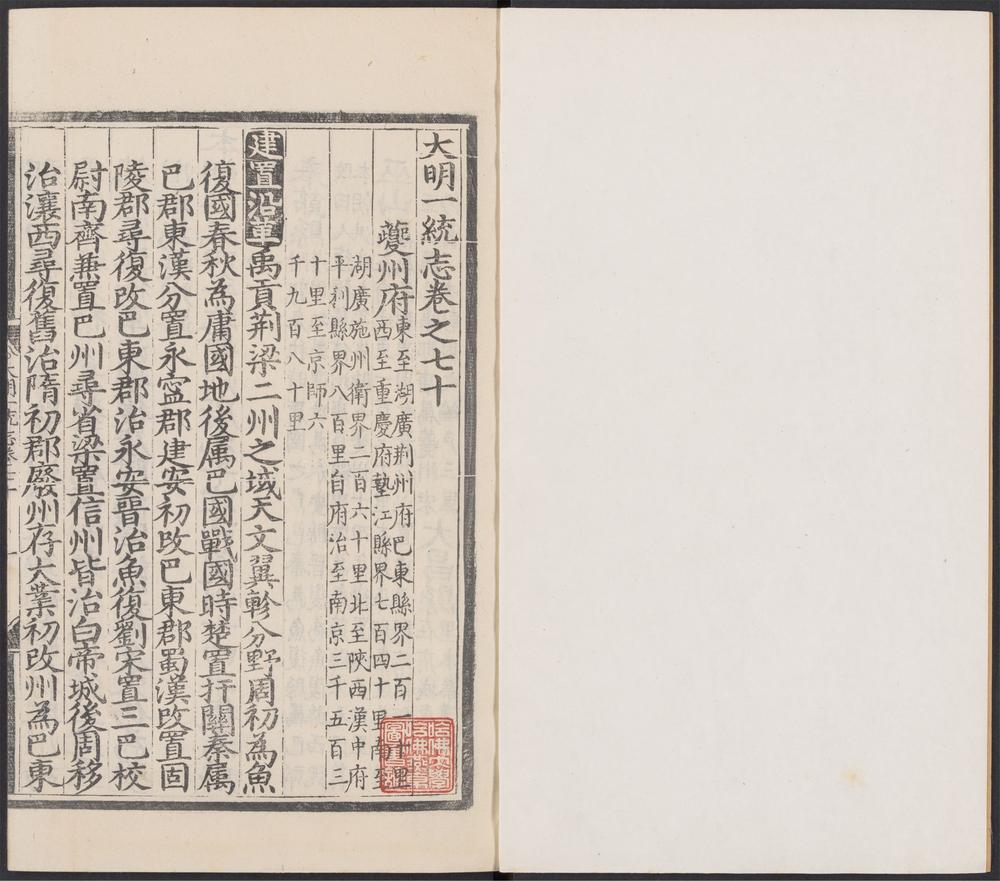 大明一統志卷之七十
夔州府
東至湖廣荆州府巴東縣界二百一十里
西至重慶府墊江縣界七百四十里南至
湖廣施州衛界二百六十里北至陝西漢中府
平利縣界八百里自府治至南京三千五百三
十里至京師六
千九百八十里
建置沿革禹貢荆梁二州之域天文翼軫分野周初為魚
復國春秋為庸國地後属巴國戰國時楚置扞關秦属
巴郡東漢分置永寧郡建安初改巴東郡蜀漢改置固
陵郡尋復改巴東郡治永安晉治魚復劉宋置三巴校
尉南齊兼置巴州尋省梁置信州皆治白帝城後周移
治瀼西尋復舊治隋初郡廢州存大業初改州為巴東